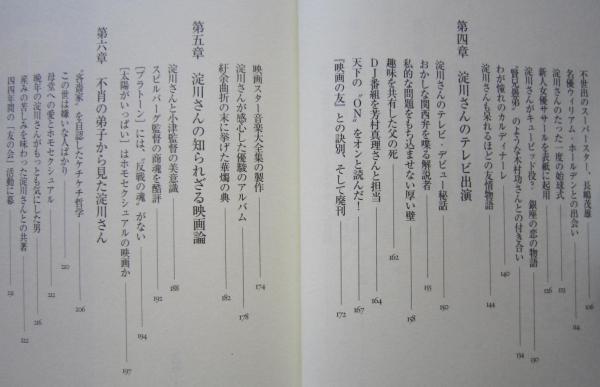 不世出のスーパースター 長嶋茂雄 106
名優ウィリアム・ホールデンとの出会い
淀川さんのたった一度の始球式 123
新人女優ササールを表紙に起用 126
淀川さんがキューピッド役? 銀座の恋の物語 130
“賢兄愚弟”のような木村功さんとの付き合い 134
わが憧れのカルディナーレ 140
淀川さんも呆れるほどの友情物語 144
第四章 淀川さんのテレビ出演
淀川さんのテレビ・デビュー秘話 150
おかしな関西弁を喋る解説者 155
私的な問題をもち込ませない厚い壁 158
趣味を共有した父の死 162
DJ番組を芳村真理さんと担当 164
天下の“ON”をオンと読んだ! 167
『映画の友』との訣別、そして廃刊 172
映画スター音楽大全集の製作 174
淀川さんが感心した優駿のアルバム 178
紆余曲折の末に挙げた華燭の典 182
第五章 淀川さんの知られざる映画論
淀川さんと小津監督の美意識 188
スピルバーグ監督の商魂を酷評 192
[プラトーン]には、“反戦の魂”がない 194
[太陽がいっぱい]はホモセクシュアルの映画か 197
第六章 不肖の弟子から見た淀川さん
“吝嗇家”を自認したケチケチ哲学 206
この世は嫌いな人ばかり 210
母堂への愛とホモセクシュアル 212
晩年の淀川さんがもっとも気にした男 216
産みの苦しみを味わった淀川さんとの共著 222
四四年間の「友の会」活動に幕